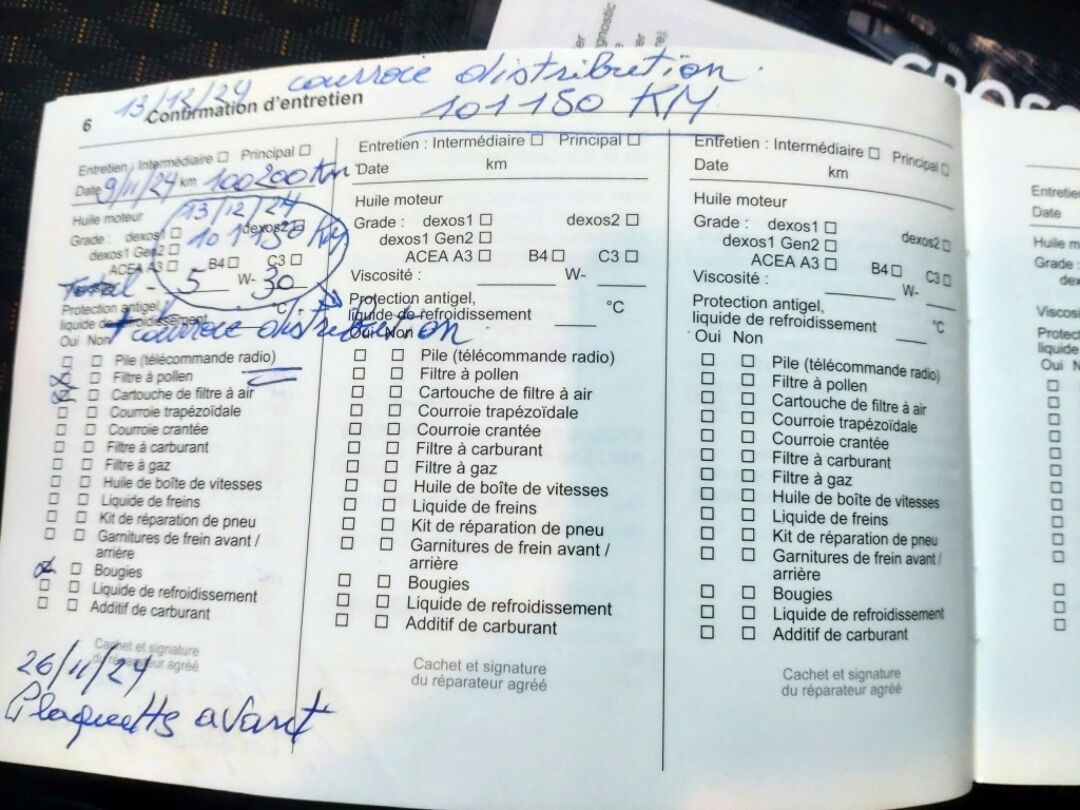 gnostic
CROSS
13/12/24 courroie distribution.
101150 KM
6 Confirmation d'entretien
Entretien : Intermédiaire ☐ Principal ☐
Date 9/11/24 km 100200 Km
Huile moteur
13/12/24
Grade : dexos1 ☐ dexos2 ☐
101150 KM
dexos1 Gen2 ☐
ACEA A3 ☐ B4 ☐ C3 ☐
Total - 5 W- 30
Protection antigel,
liquide de refroidissement °C
+ courroie distribution
Oui Non
☐ ☐ Pile (télécommande radio)
☒ ☐ Filtre à pollen
☒ ☐ Cartouche de filtre à air
☐ ☐ Courroie trapézoïdale
☐ ☐ Courroie crantée
☐ ☐ Filtre à carburant
☐ ☐ Filtre à gaz
☐ ☐ Huile de boîte de vitesses
☐ ☐ Liquide de freins
☐ ☐ Kit de réparation de pneu
☐ ☐ Garnitures de frein avant /
arrière
☒ ☐ Bougies
☐ ☐ Liquide de refroidissement
☐ ☐ Additif de carburant
Cachet et signature
du réparateur agréé
26/11/24
Plaquetts avant
Entretien : Intermédiaire ☐ Principal ☐
Date km
Huile moteur
Grade : dexos1 ☐ dexos2 ☐
dexos1 Gen2 ☐
ACEA A3 ☐ B4 ☐ C3 ☐
Viscosité : W-
Protection antigel,
liquide de refroidissement °C
Oui Non
☐ ☐ Pile (télécommande radio)
☐ ☐ Filtre à pollen
☐ ☐ Cartouche de filtre à air
☐ ☐ Courroie trapézoïdale
☐ ☐ Courroie crantée
☐ ☐ Filtre à carburant
☐ ☐ Filtre à gaz
☐ ☐ Huile de boîte de vitesses
☐ ☐ Liquide de freins
☐ ☐ Kit de réparation de pneu
☐ ☐ Garnitures de frein avant /
arrière
☐ ☐ Bougies
☐ ☐ Liquide de refroidissement
☐ ☐ Additif de carburant
Cachet et signature
du réparateur agréé
Entretien : Intermédiaire ☐ Principal ☐
Date km
Huile moteur
Grade : dexos1 ☐ dexos2 ☐
dexos1 Gen2 ☐
ACEA A3 ☐ B4 ☐ C3 ☐
Viscosité : W-
Protection antigel,
liquide de refroidissement °C
Oui Non
☐ ☐ Pile (télécommande radio)
☐ ☐ Filtre à pollen
☐ ☐ Cartouche de filtre à air
☐ ☐ Courroie trapézoïdale
☐ ☐ Courroie crantée
☐ ☐ Filtre à carburant
☐ ☐ Filtre à gaz
☐ ☐ Huile de boîte de vitesses
☐ ☐ Liquide de freins
☐ ☐ Kit de réparation de pneu
☐ ☐ Garnitures de frein avant /
arrière
☐ ☐ Bougies
☐ ☐ Liquide de refroidissement
☐ ☐ Additif de carburant
Cachet et signature
du réparateur agréé
Entretien
Date
Huile m
Grade :
Viscos
Protec
liquide
Oui N